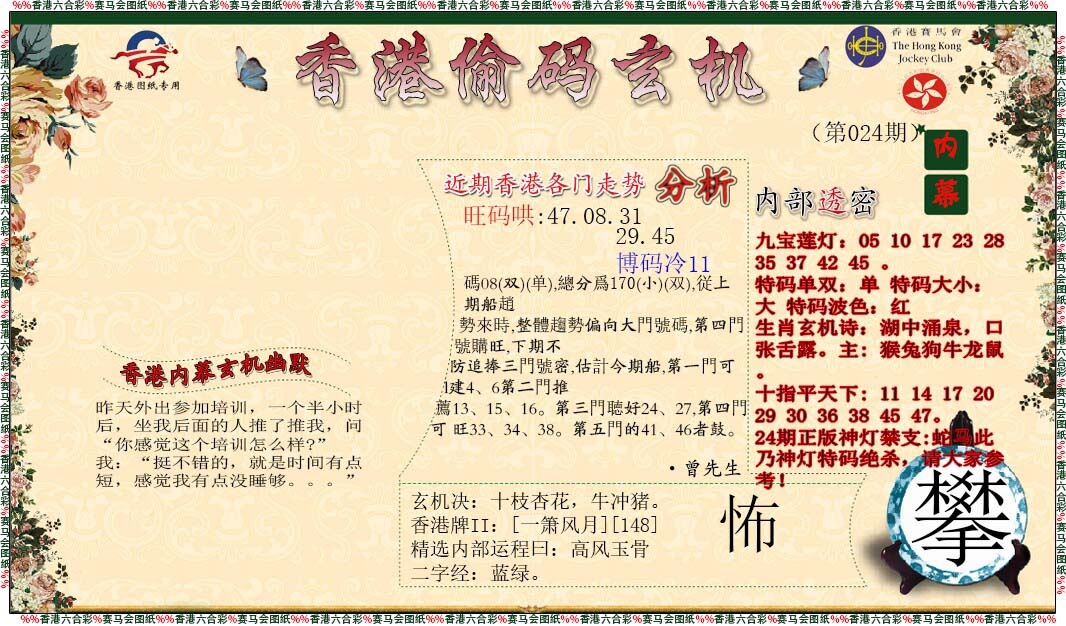 %%香港六合彩%赛马会图纸%%香港六合彩%赛马会图纸%%香港六合彩%赛马会图纸%%香港六合彩%赛马会图纸%%香港六合彩%赛马会图纸%%香港六合彩%赛马会图纸%%香港六合彩%%
香港图纸专用
香港偷码玄机
香港賽馬會
The Hong Kong
Jockey Club
（第024期）
内
幕
近期香港各门走势 分析
旺码哄:47.08.31
29.45
博码冷11
碼08(双)(单),總分爲170(小)(双),從上
期船趙
勢來時,整體趨勢偏向大門號碼,第四門
號購旺,下期不
防追捧三門號密,估計今期船,第一門可
建4、6第二門推
薦13、15、16。第三門聴好24、27,第四門
可 旺33、34、38。第五門的41、46者鼓。
·曾先生
内部透密
九宝莲灯：05 10 17 23 28
35 37 42 45 。
特码单双：单 特码大小：
大 特码波色：红
生肖玄机诗：湖中涌泉，口
张舌露。主：猴兔狗牛龙鼠
。
十指平天下：11 14 17 20
29 30 36 38 45 47。
24期正版神灯禁支:蛇马此
乃神灯特码绝杀，请大家参
考！
香港内幕玄机幽默
昨天外出参加培训，一个半小时
后，坐我后面的人推了推我，问
“你感觉这个培训怎么样?”
我：“挺不错的，就是时间有点
短，感觉我有点没睡够。。。”
玄机决：十枝杏花，牛冲猪。
香港牌II：[一箫风月][148]
精选内部运程曰：高风玉骨
二字经：蓝绿。
怖
攀
%%香港六合彩%赛马会图纸%%香港六合彩%赛马会图纸%%香港六合彩%赛马会图纸%%香港六合彩%赛马会图纸%%香港六合彩%赛马会图纸%%香港六合彩%赛马会图纸%%香港六合彩%%